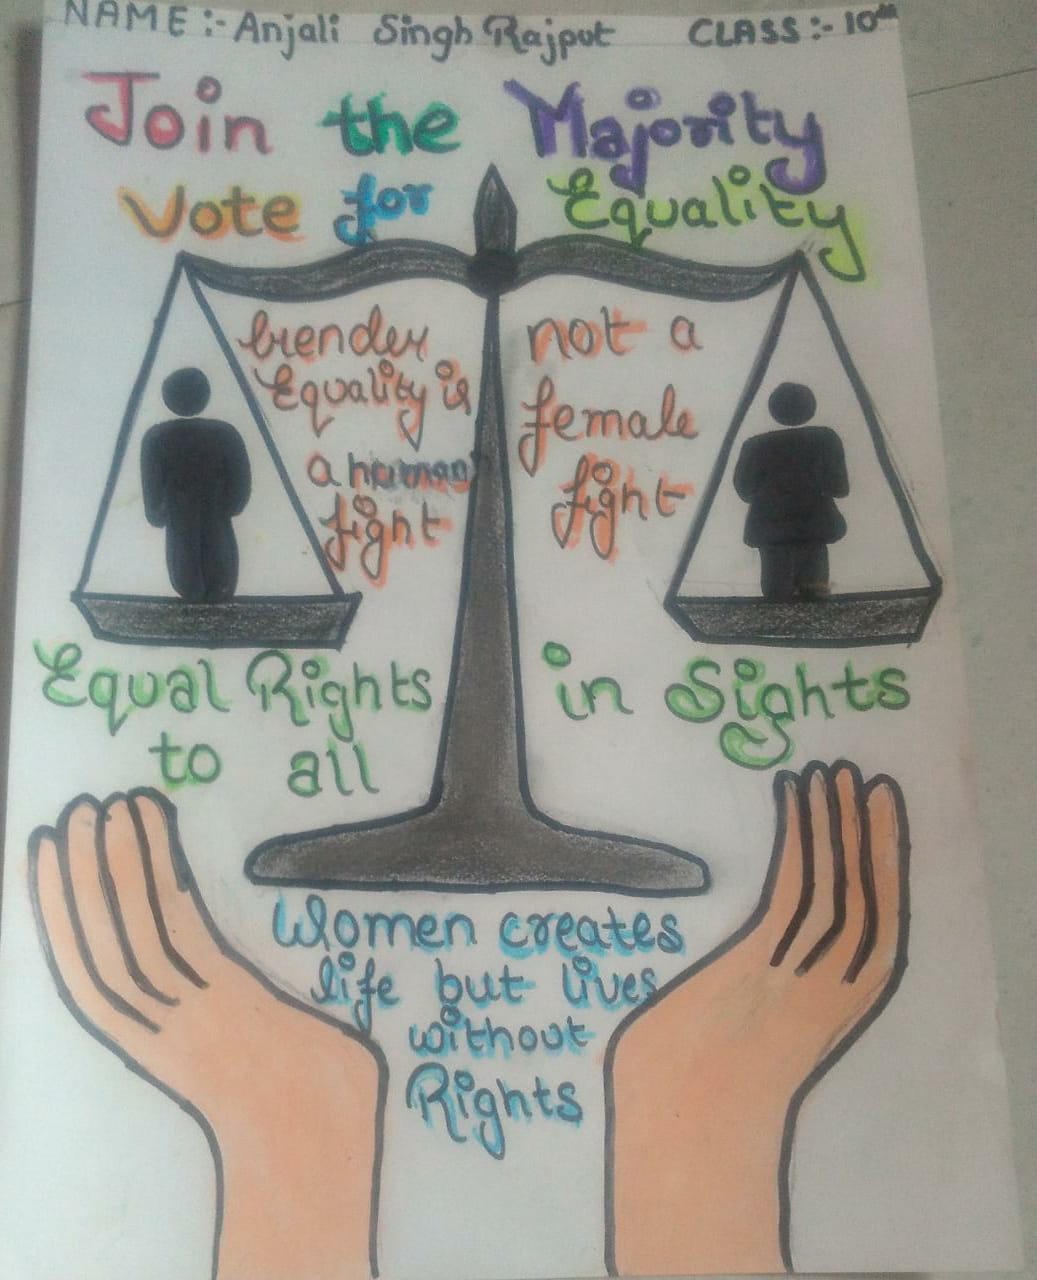 NAME :- Anjali Singh Rajput CLASS :- 10th
Join the Majority
Vote for Equality
Gender
Equality is
a human
fight
not a
female
fight
Equal Rights
to all
in Sights
Women creates
life but lives
without
Rights